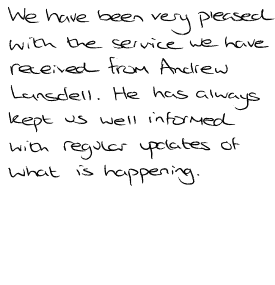 We have been very pleased
with the service we have
received from Andrew
Lansdell. He has always
kept us well informed
with regular updates of
what is happening.